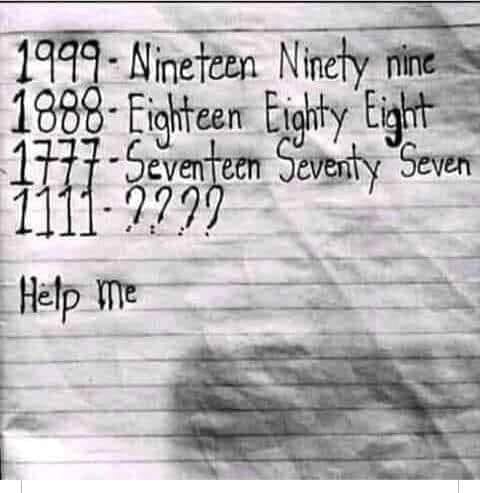 1999- Nineteen Ninety nine
1888- Eighteen Eighty Eight
1777- Seventeen Seventy Seven
1111- ????
Help me